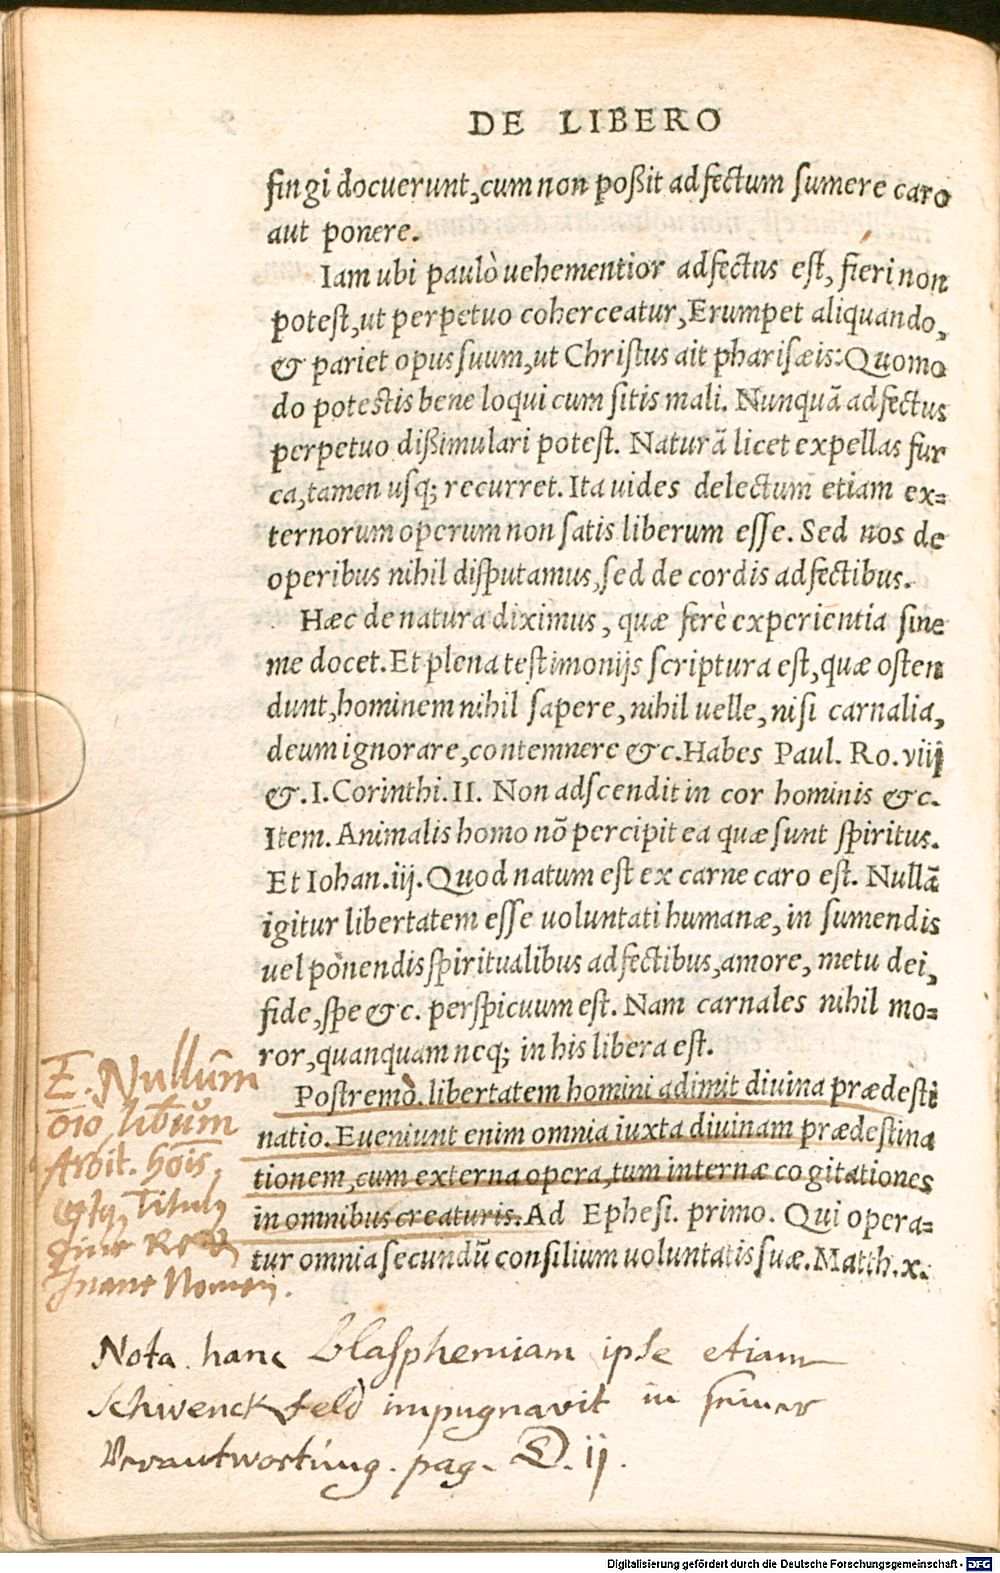 DE LIBERO
fingi docuerunt,cum non poßit adfectum sumere caro
aut ponere.
Iam ubi paulò uehementior adfectus est, fieri non
potest,ut perpetuo coherceatur,Erumpet aliquando,
& pariet opus suum,ut Christus ait pharisæis:Quomo
do potestis bene loqui cum sitis mali. Nunquā adfectus
perpetuo dißimulari potest. Naturā licet expellas fur
ca,tamen usq; recurret. Ita uides delectum etiam ex=
ternorum operum non satis liberum esse. Sed nos de
operibus nihil disputamus,sed de cordis adfectibus.
Hæc de natura diximus, quæ ferè experientia sine
me docet. Et plena testimonijs scriptura est,quæ osten
dunt,hominem nihil sapere,nihil uelle,nisi carnalia,
deum ignorare,contemnere &c.Habes Paul. Ro.viij
&.I.Corinthi.II. Non adscendit in cor hominis &c.
Item. Animalis homo nō percipit ea quæ sunt spiritus.
Et Iohan.iij.Quod natum est ex carne caro est. Nullā
igitur libertatem esse uoluntati humanæ,in sumendis
uel ponendis spiritualibus adfectibus,amore,metu dei,
fide,spe &c. perspicuum est. Nam carnales nihil mo=
ror,quanquam neq; in his libera est.
Postremò.libertatem homini adimit diuina prædesti
natio. Eueniunt enim omnia iuxta diuinam prædestina
tionem,cum externa opera,tum internæ cogitationes
in omnibus creaturis.Ad Ephesi. primo. Qui opera=
tur omnia secundū consilium uoluntatis suæ.Matth.x.
E. Nullūm
oīo, libūm
Arbit. hōis,
Titulus
sine Re &
Inane Nomen.
Nota hanc blasphemiam ipse etiam
Schwenckfeld impugnavit in seiner
Verantwortung. pag. D. ij.
Digitalisierung gefördert durch die Deutsche Forschungsgemeinschaft - DFG